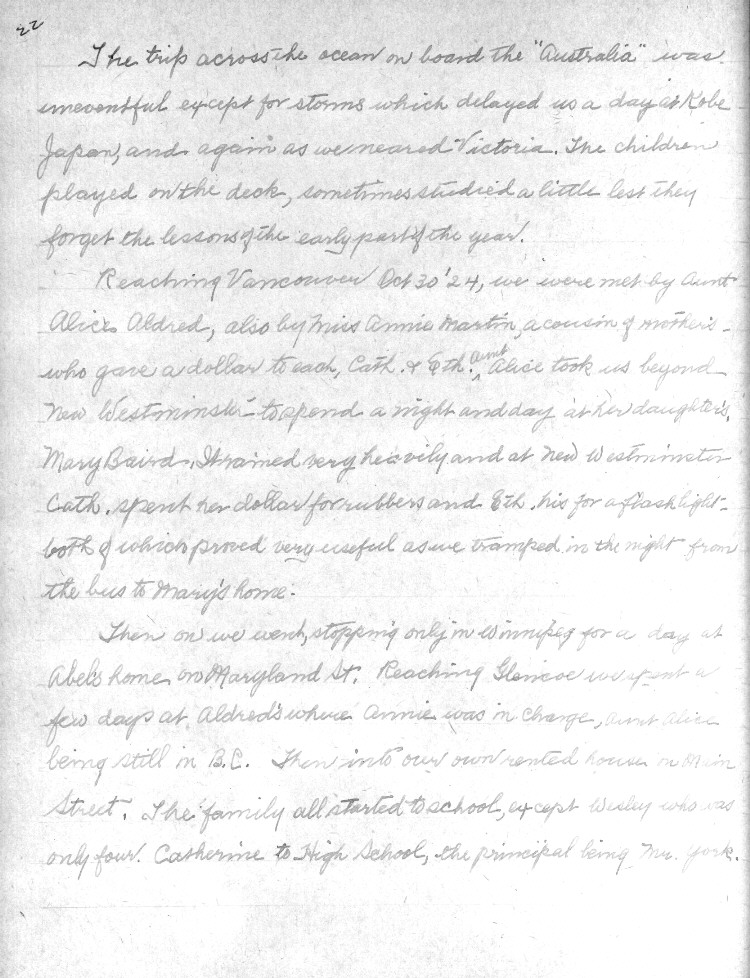 22
The trip across the ocean on board the "Australia" was
uneventful except for storms which delayed us a day at Kobe
Japan, and again as we neared Victoria. The children
played on the deck, sometimes studied a little lest they
forget the lessons of the early part of the year.
Reaching Vancouver Oct 30 '24, we were met by Aunt
Alice Aldred, also by Miss Annie Martin, a cousin of mother's -
who gave a dollar to each, Cath. & Eth. Aunt Alice took us beyond
New Westminster - to spend a night and day at her daughter's,
Mary Baird. It rained very heavily and at New Westminster
Cath. spent her dollar for rubbers and Eth. his for a flashlight -
both of which proved very useful as we tramped in the night from
the bus to Mary's home.
Then on we went, stopping only in Winnipeg for a day at
Abel's home on Maryland St. Reaching Glencoe we spent a
few days at Aldred's where Annie was in charge, Aunt Alice
being still in B.C. Then into our own rented house on Main
Street. The family all started to school, except Wesley who was
only four. Catherine to High School, the principal being Mr. York.